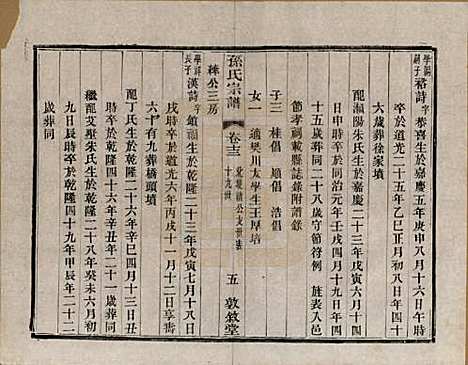 學錫嗣子
禧詩字恭喜生於嘉慶五年庚申八月十六日午時
卒於道光二十五年乙巳正月初八日年四
六歲葬徐家墳
配潁陽朱氏生於嘉慶二十三年戊寅七月十八
日申時卒於同治元年壬戌四月十九日年四
十五歲葬同二十八歲守節符例 旌表入邑
節孝祠載縣誌錄附譜錄
子三 桂倡 旭倡 浩倡
女一 適樊川太學生王厚培
孫氏宗譜
卷十三
公支世表
十九世
五
敦敘堂
三房
學詳長子
漢詩字
卒於道光六年丙戌十一月十二日享壽
六十有九葬橋頭墳
配丁氏生於乾隆二十六年辛巳四月十三日丑
時卒於乾隆四十六年辛丑年二十一歲葬同
繼配艾墅朱氏生於乾隆二十八年癸未六月初
九日辰時卒於乾隆四十九年甲辰年二十
歲葬同